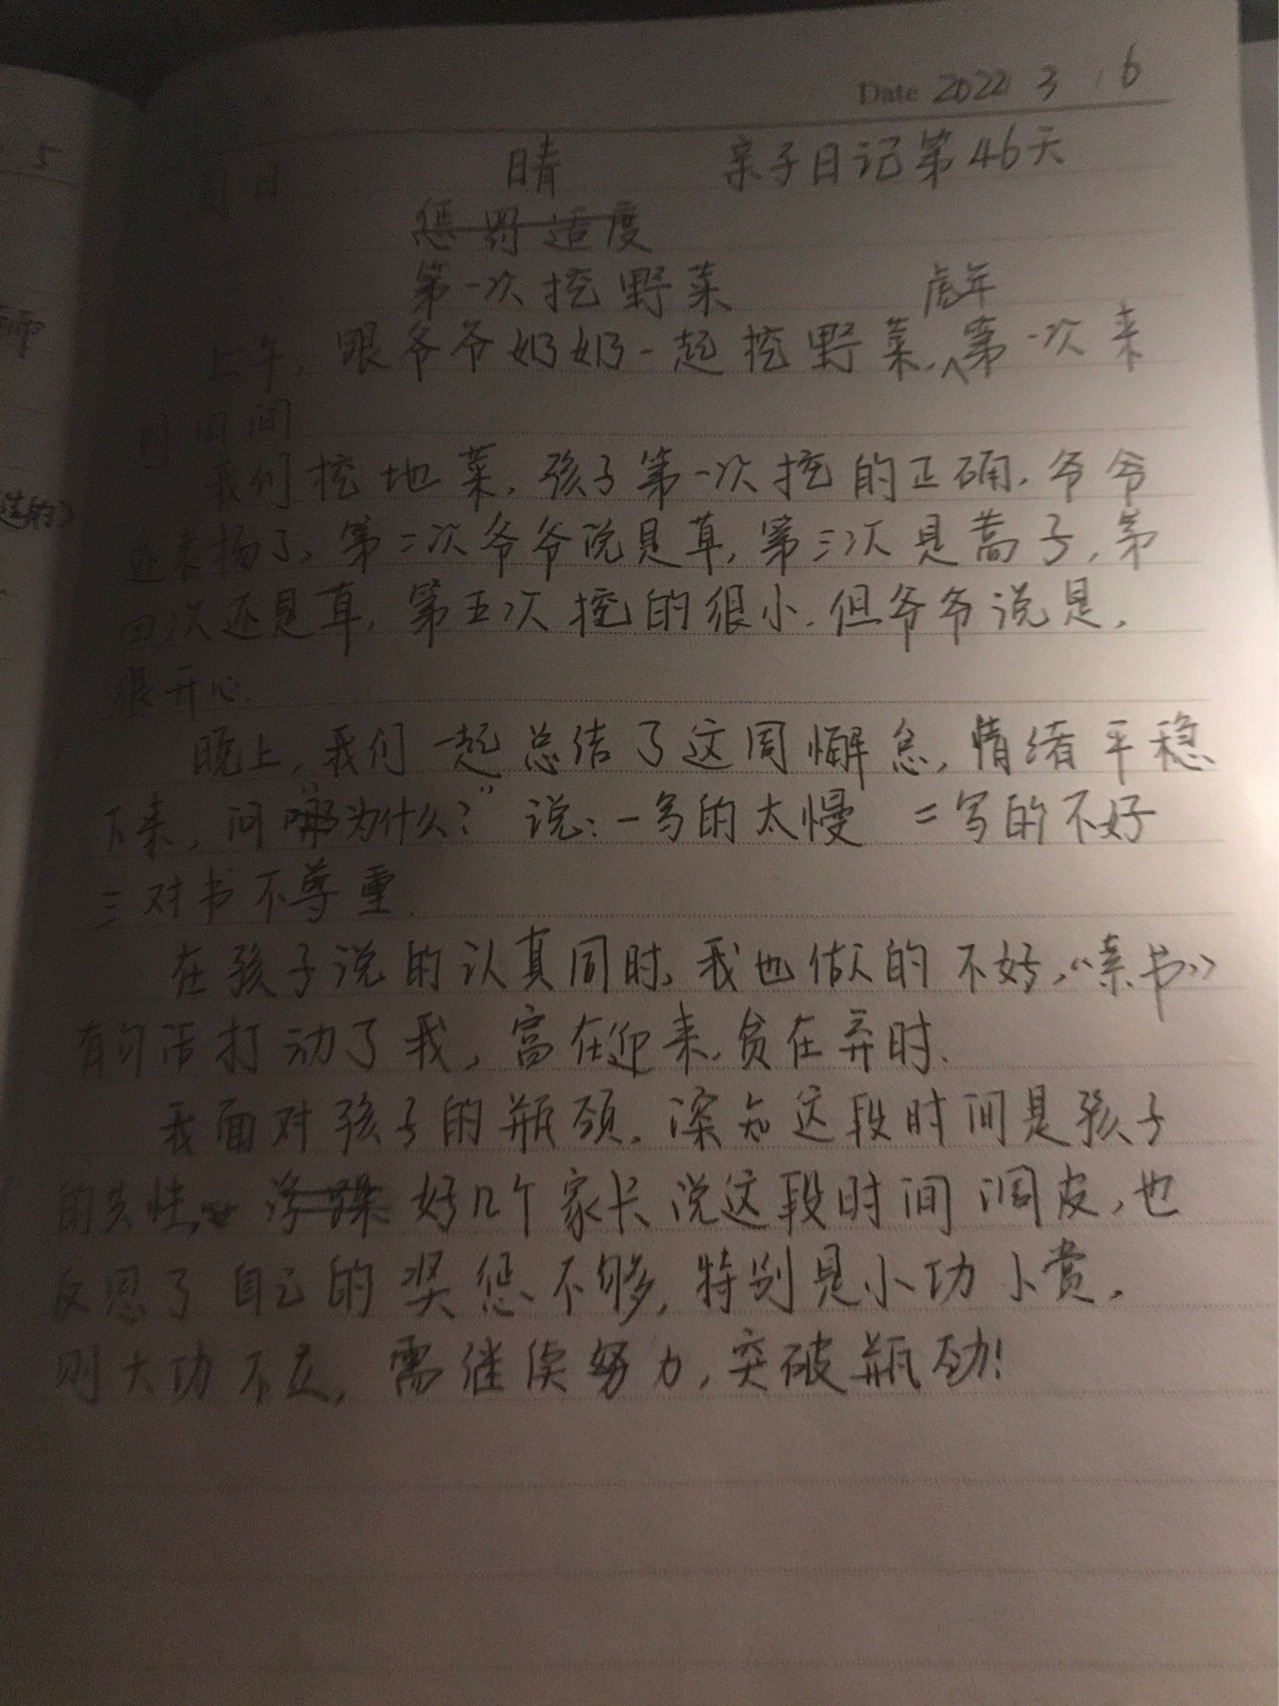 Date 2022 3 6
5
周日 晴 亲子日记第46天
惩罚适度
第一次挖野菜
虎年
上午,跟爷爷奶奶一起挖野菜,第一次来
到田间
我们挖地菜,孩子第一次挖的正确,爷爷
还表扬了,第二次爷爷说是草,第三次是蒿子,第
四次还是草,第五次挖的很小,但爷爷说是,
很开心.
晚上,我们一起总结了这周懈怠,情绪平稳
下来,问“哪为什么?”说:一写的太慢 二写的不好
三对书不尊重.
在孩子说的认真同时,我也做的不好,《素书》
有句话打动了我,富在迎来,贫在弃时.
我面对孩子的瓶颈,深知这段时间是孩子
的共性, 浮躁 好几个家长说这段时间调皮,也
反思了自己的奖惩不够,特别是小功小赏,
则大功不立,需继续努力,突破瓶劲!